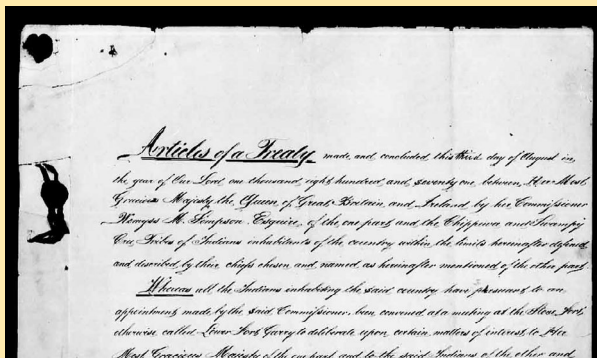 Articles of a Treaty made and concluded this third day of August in
the year of Our Lord one thousand eight hundred and seventy one between Her Most
Gracious Majesty the Queen of Great Britain and Ireland by her Commissioner
Wemyss M. Simpson Esquire, of the one part and the Chippewa and Swampy
Cree Tribes of Indians inhabitants of the country within the limits hereinafter defined
and described by their chiefs chosen and named as hereinafter mentioned of the other part.
Whereas all the Indians inhabiting the said country have pursuant to an
appointment made by the said Commissioner been convened at a meeting at the Stone Fort
otherwise called Lower Fort Garry to deliberate upon certain matters of interest to Her
Most Gracious Majesty of the one part and to the said Indians of the other and